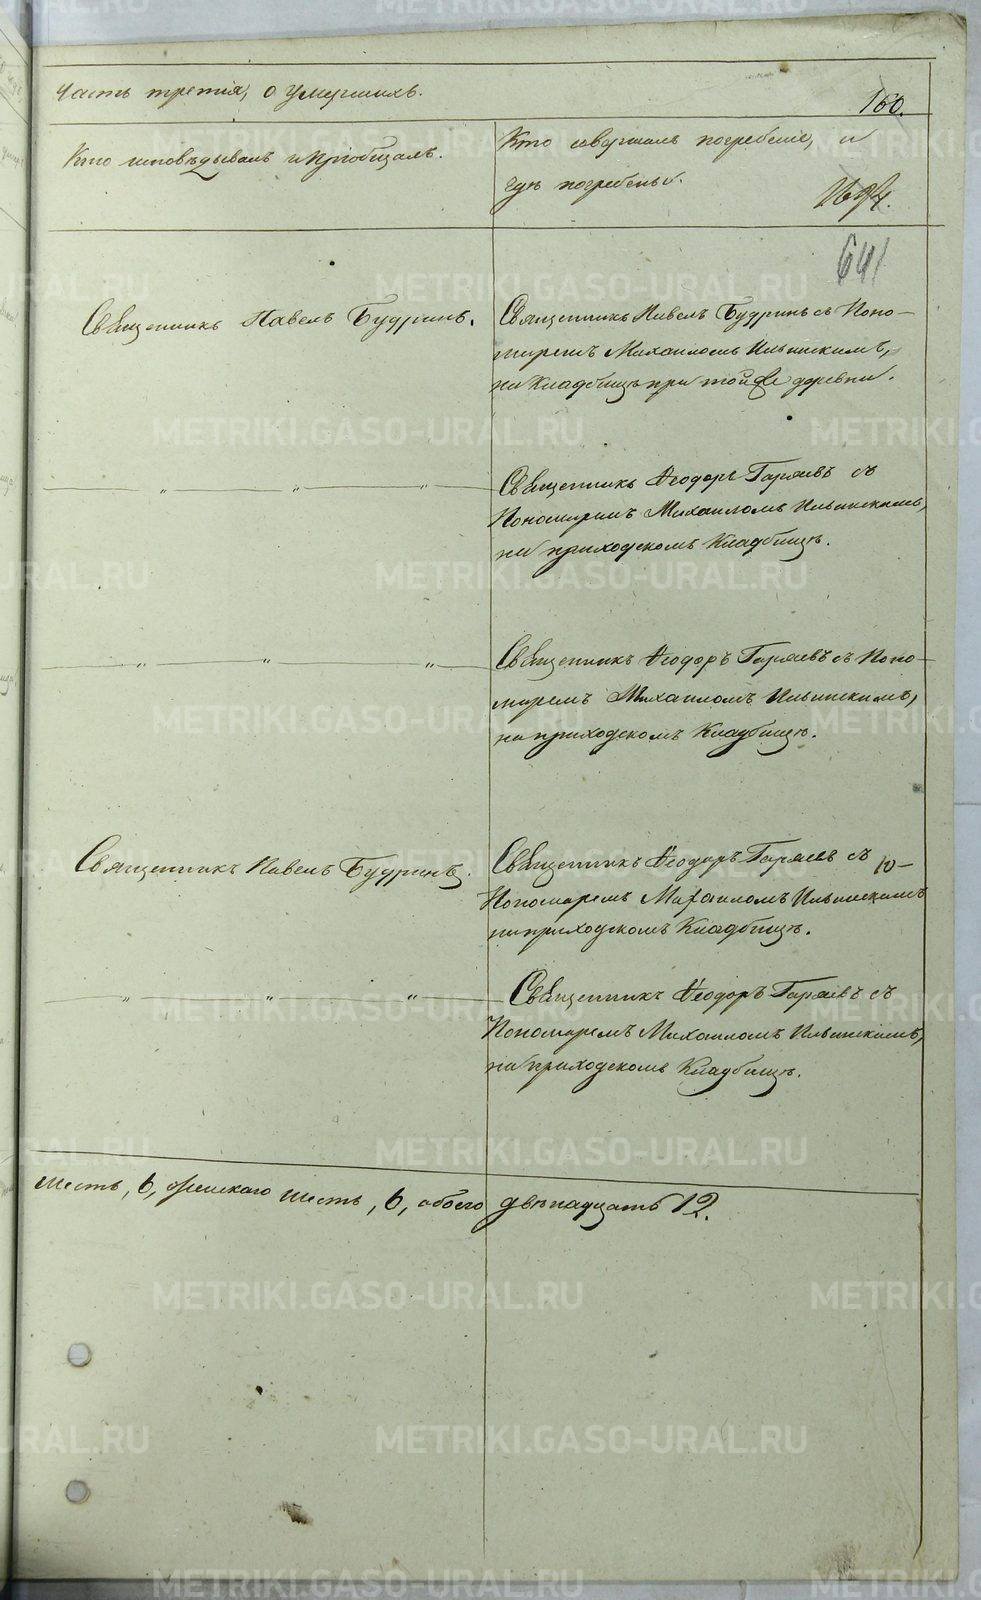 Часть третія, о умершихъ.
160.
Кто исповѣдывалъ и пріобщалъ.
Кто совершалъ погребеніе, и
гдѣ погребены.
641
Священникъ Павелъ Будринъ.
Священникъ Павелъ Будринъ съ Поно-
маремъ Михаиломъ Ильинскимъ,
на Кладбищѣ при той же деревни.
— „ — „ — „ —
Священникъ Ѳеодоръ Гаряевъ съ
Пономаремъ Михаиломъ Ильинскимъ,
на приходскомъ Кладбищѣ.
— „ — „ — „ —
Священникъ Ѳеодоръ Гаряевъ съ Поно-
маремъ Михаиломъ Ильинскимъ,
на приходскомъ Кладбищѣ.
Священникъ Павелъ Будринъ.
Священникъ Ѳеодоръ Гаряевъ съ
Пономаремъ Михаиломъ Ильинскимъ
на приходскомъ Кладбищѣ.
— „ — „ — „ —
Священникъ Ѳеодоръ Гаряевъ съ
Пономаремъ Михаиломъ Ильинскимъ,
на приходскомъ Кладбищѣ.
шесть, 6, женскаго шесть, 6, обоего двѣнадцать 12.
METRIKI.GASO-URAL.RU